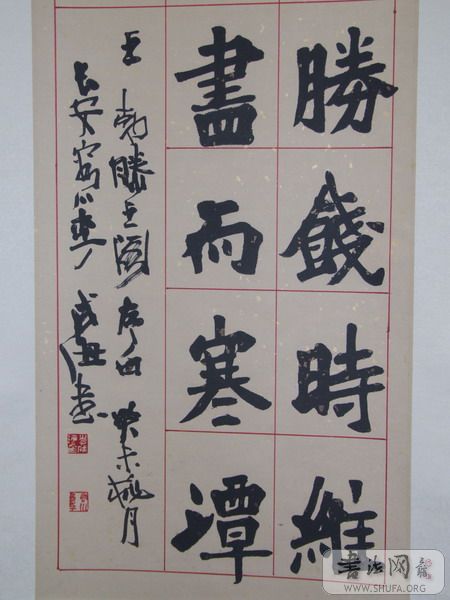 勝餞時維
盡而寒潭
王勃滕王閣序句 癸未桃月
長安
書法网
WWW.SHUFA.ORG